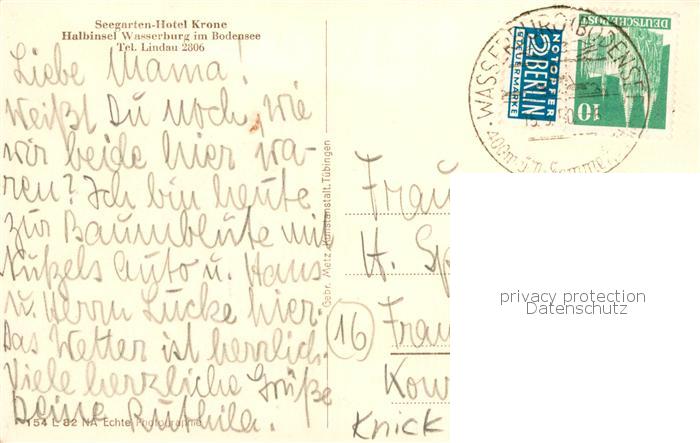 Seegarten-Hotel Krone
Halbinsel Wasserburg im Bodensee
Tel. Lindau 2806
Liebe Mama!
Weißt Du noch, wie
wir beide hier wa-
ren? Ich bin heute
zur Baumblüte mit
Nußels Auto u. Hans
u. Herrn Lucke hier.
Das Wetter ist herrlich.
Viele herzliche Grüße
Deine Ruthila.
154 L 82 NA Echte Photographie
Gebr. Metz, Kunstanstalt, Tübingen
WASSERBURG (BODENSEE)
400m ü.m.
NOTOPFER
2 BERLIN
STEUERMARKE
DEUTSCHE POST
10
Frau
H. Sp
16
Fran
Kon
Knick
privacy protection
Datenschutz